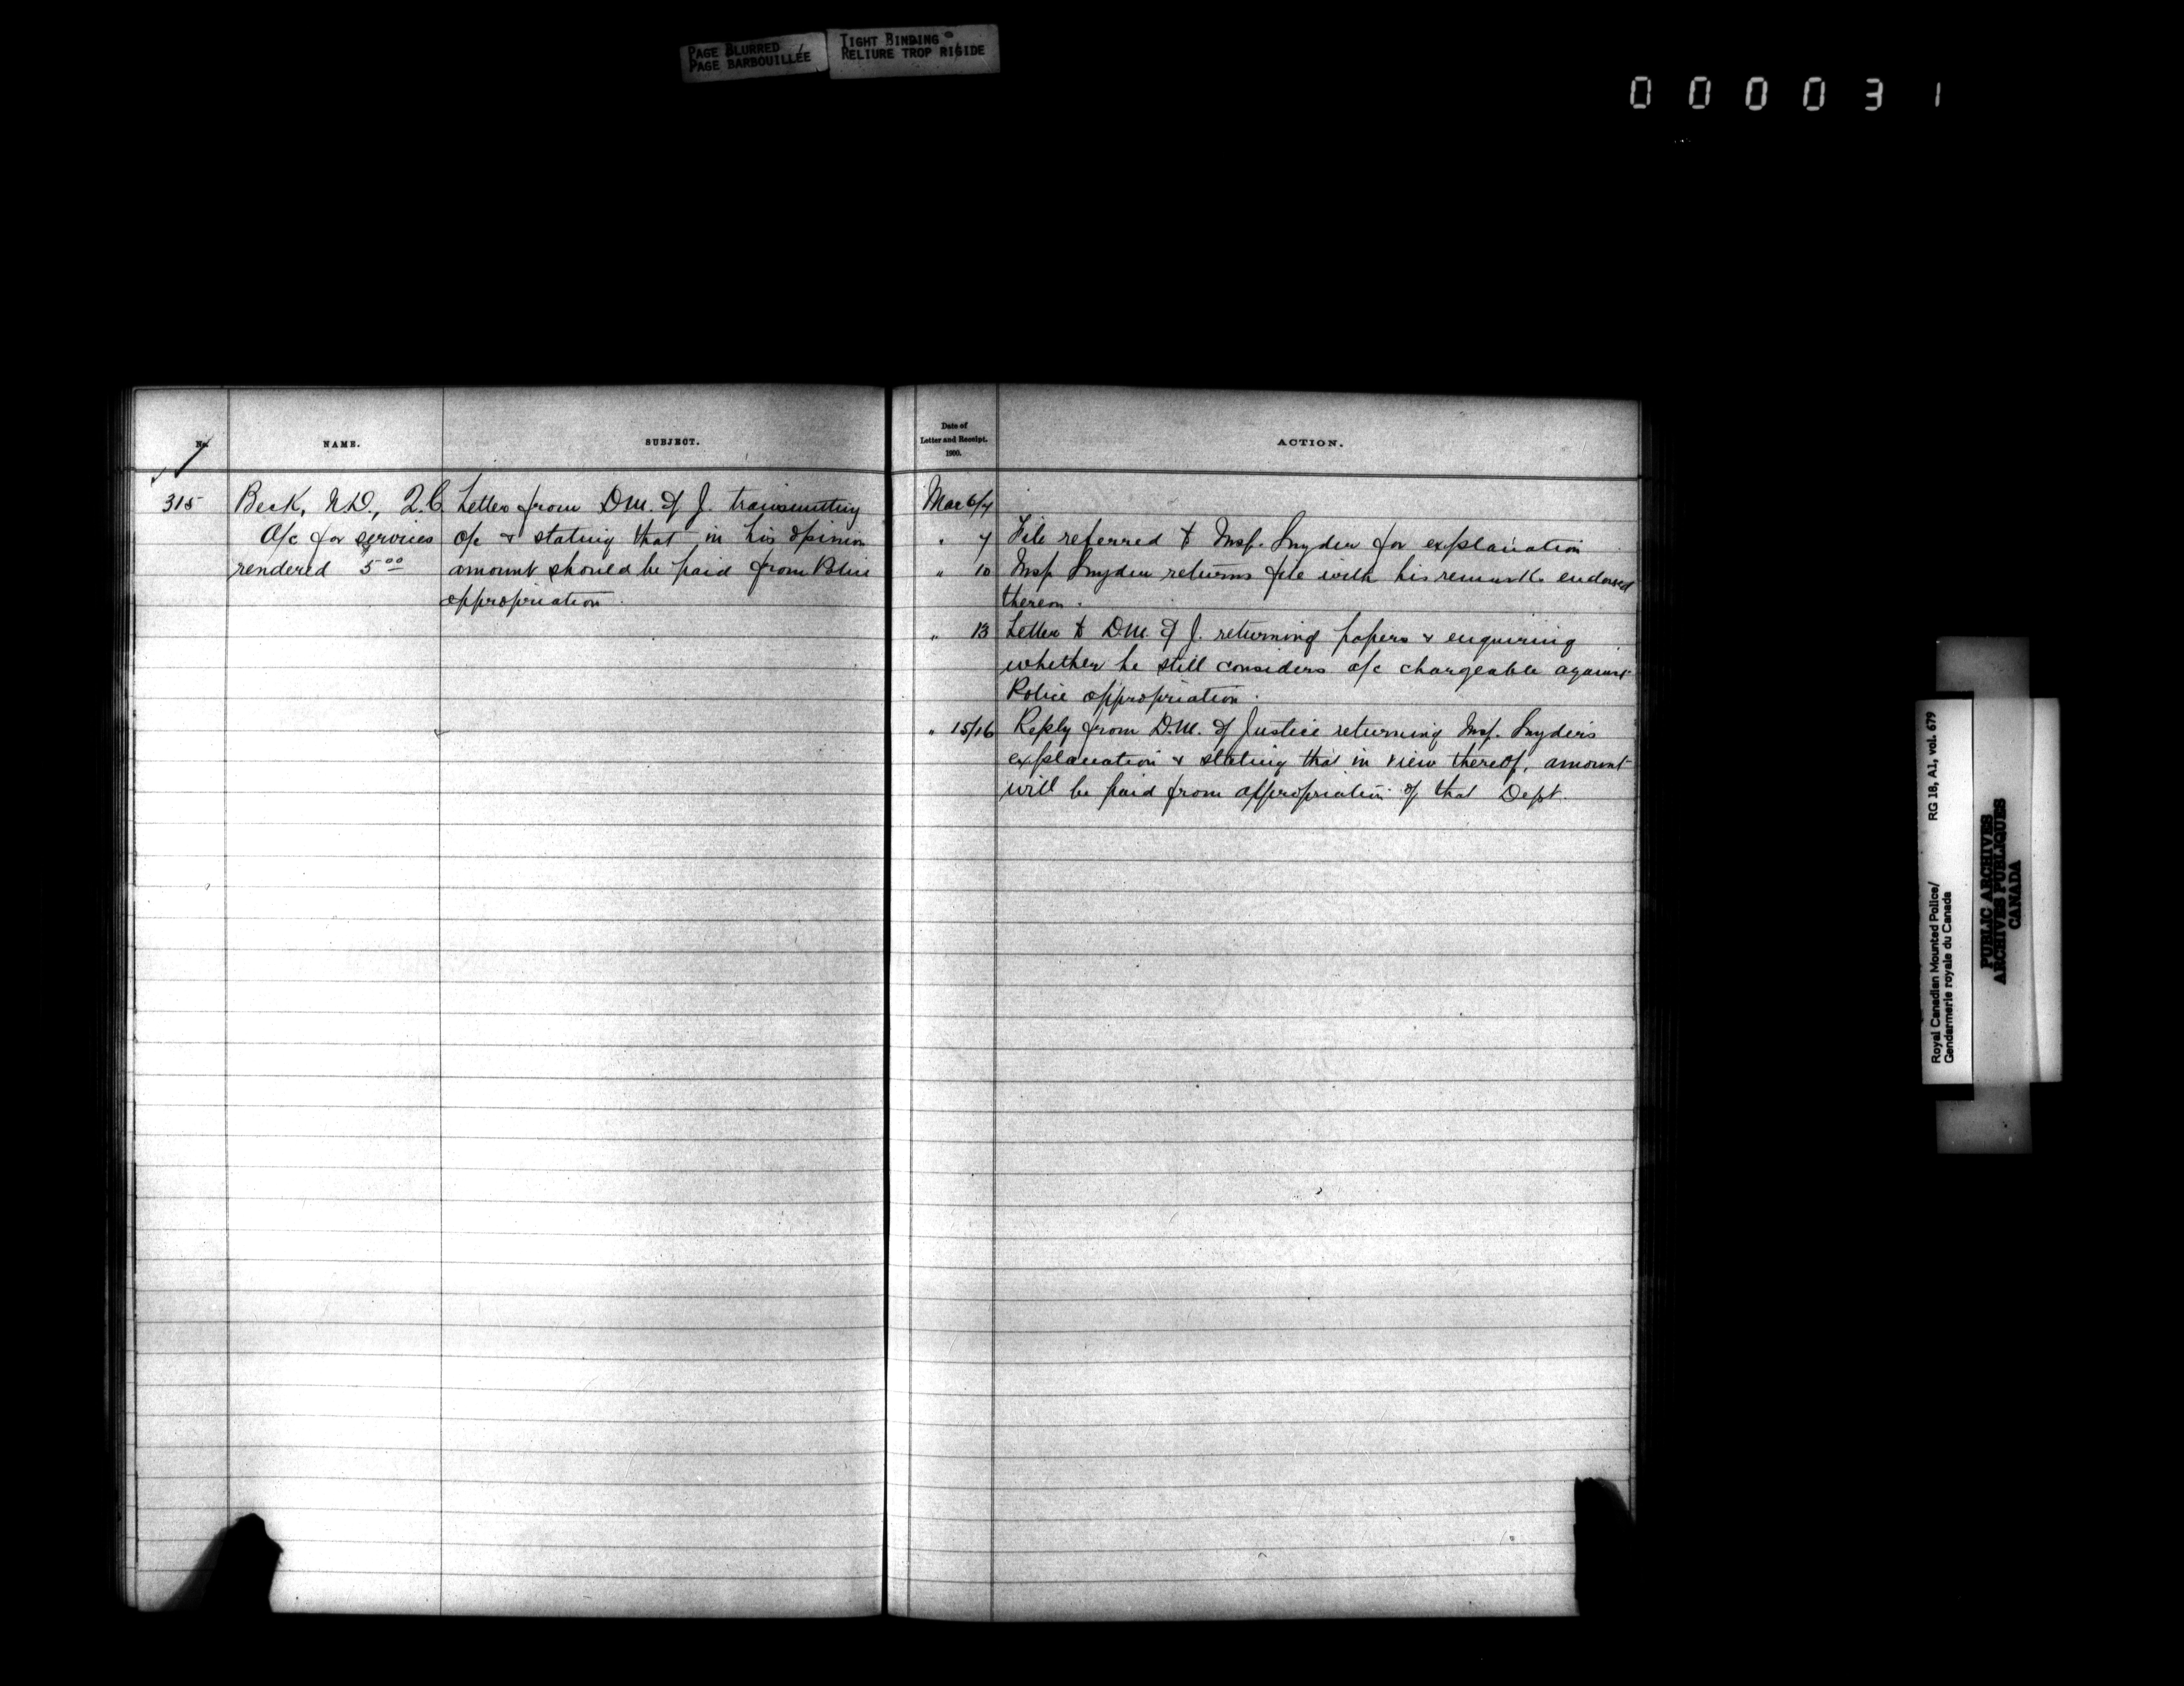 PAGE BLURRED
PAGE BARBOUILLÉE
TIGHT BINDING
RELIURE TROP RIGIDE
000031
No.
NAME.
SUBJECT.
Date of
Letter and Receipt.
1900.
ACTION.
315
Beck, N.D., Q.C.
A/c for services
rendered 5.00
Letter from D.M. of J. transmitting
a/c & stating that in his opinion
amount should be paid from Police
appropriation.
Mar 6/7
" 7 File referred to Insp. Snyder for explanation
" 10 Insp Snyder returns file with his remarks endorsed
thereon.
" 13 Letter to D.M. of J. returning papers & enquiring
whether he still considers a/c chargeable against
Police appropriation.
" 15/16 Reply from D.M. of Justice returning Insp. Snyder's
explanation & stating that in view thereof, amount
will be paid from appropriation of that Dept.
Royal Canadian Mounted Police/
Gendarmerie royale du Canada
RG 18, A1, vol. 679
PUBLIC ARCHIVES
ARCHIVES PUBLIQUES
CANADA